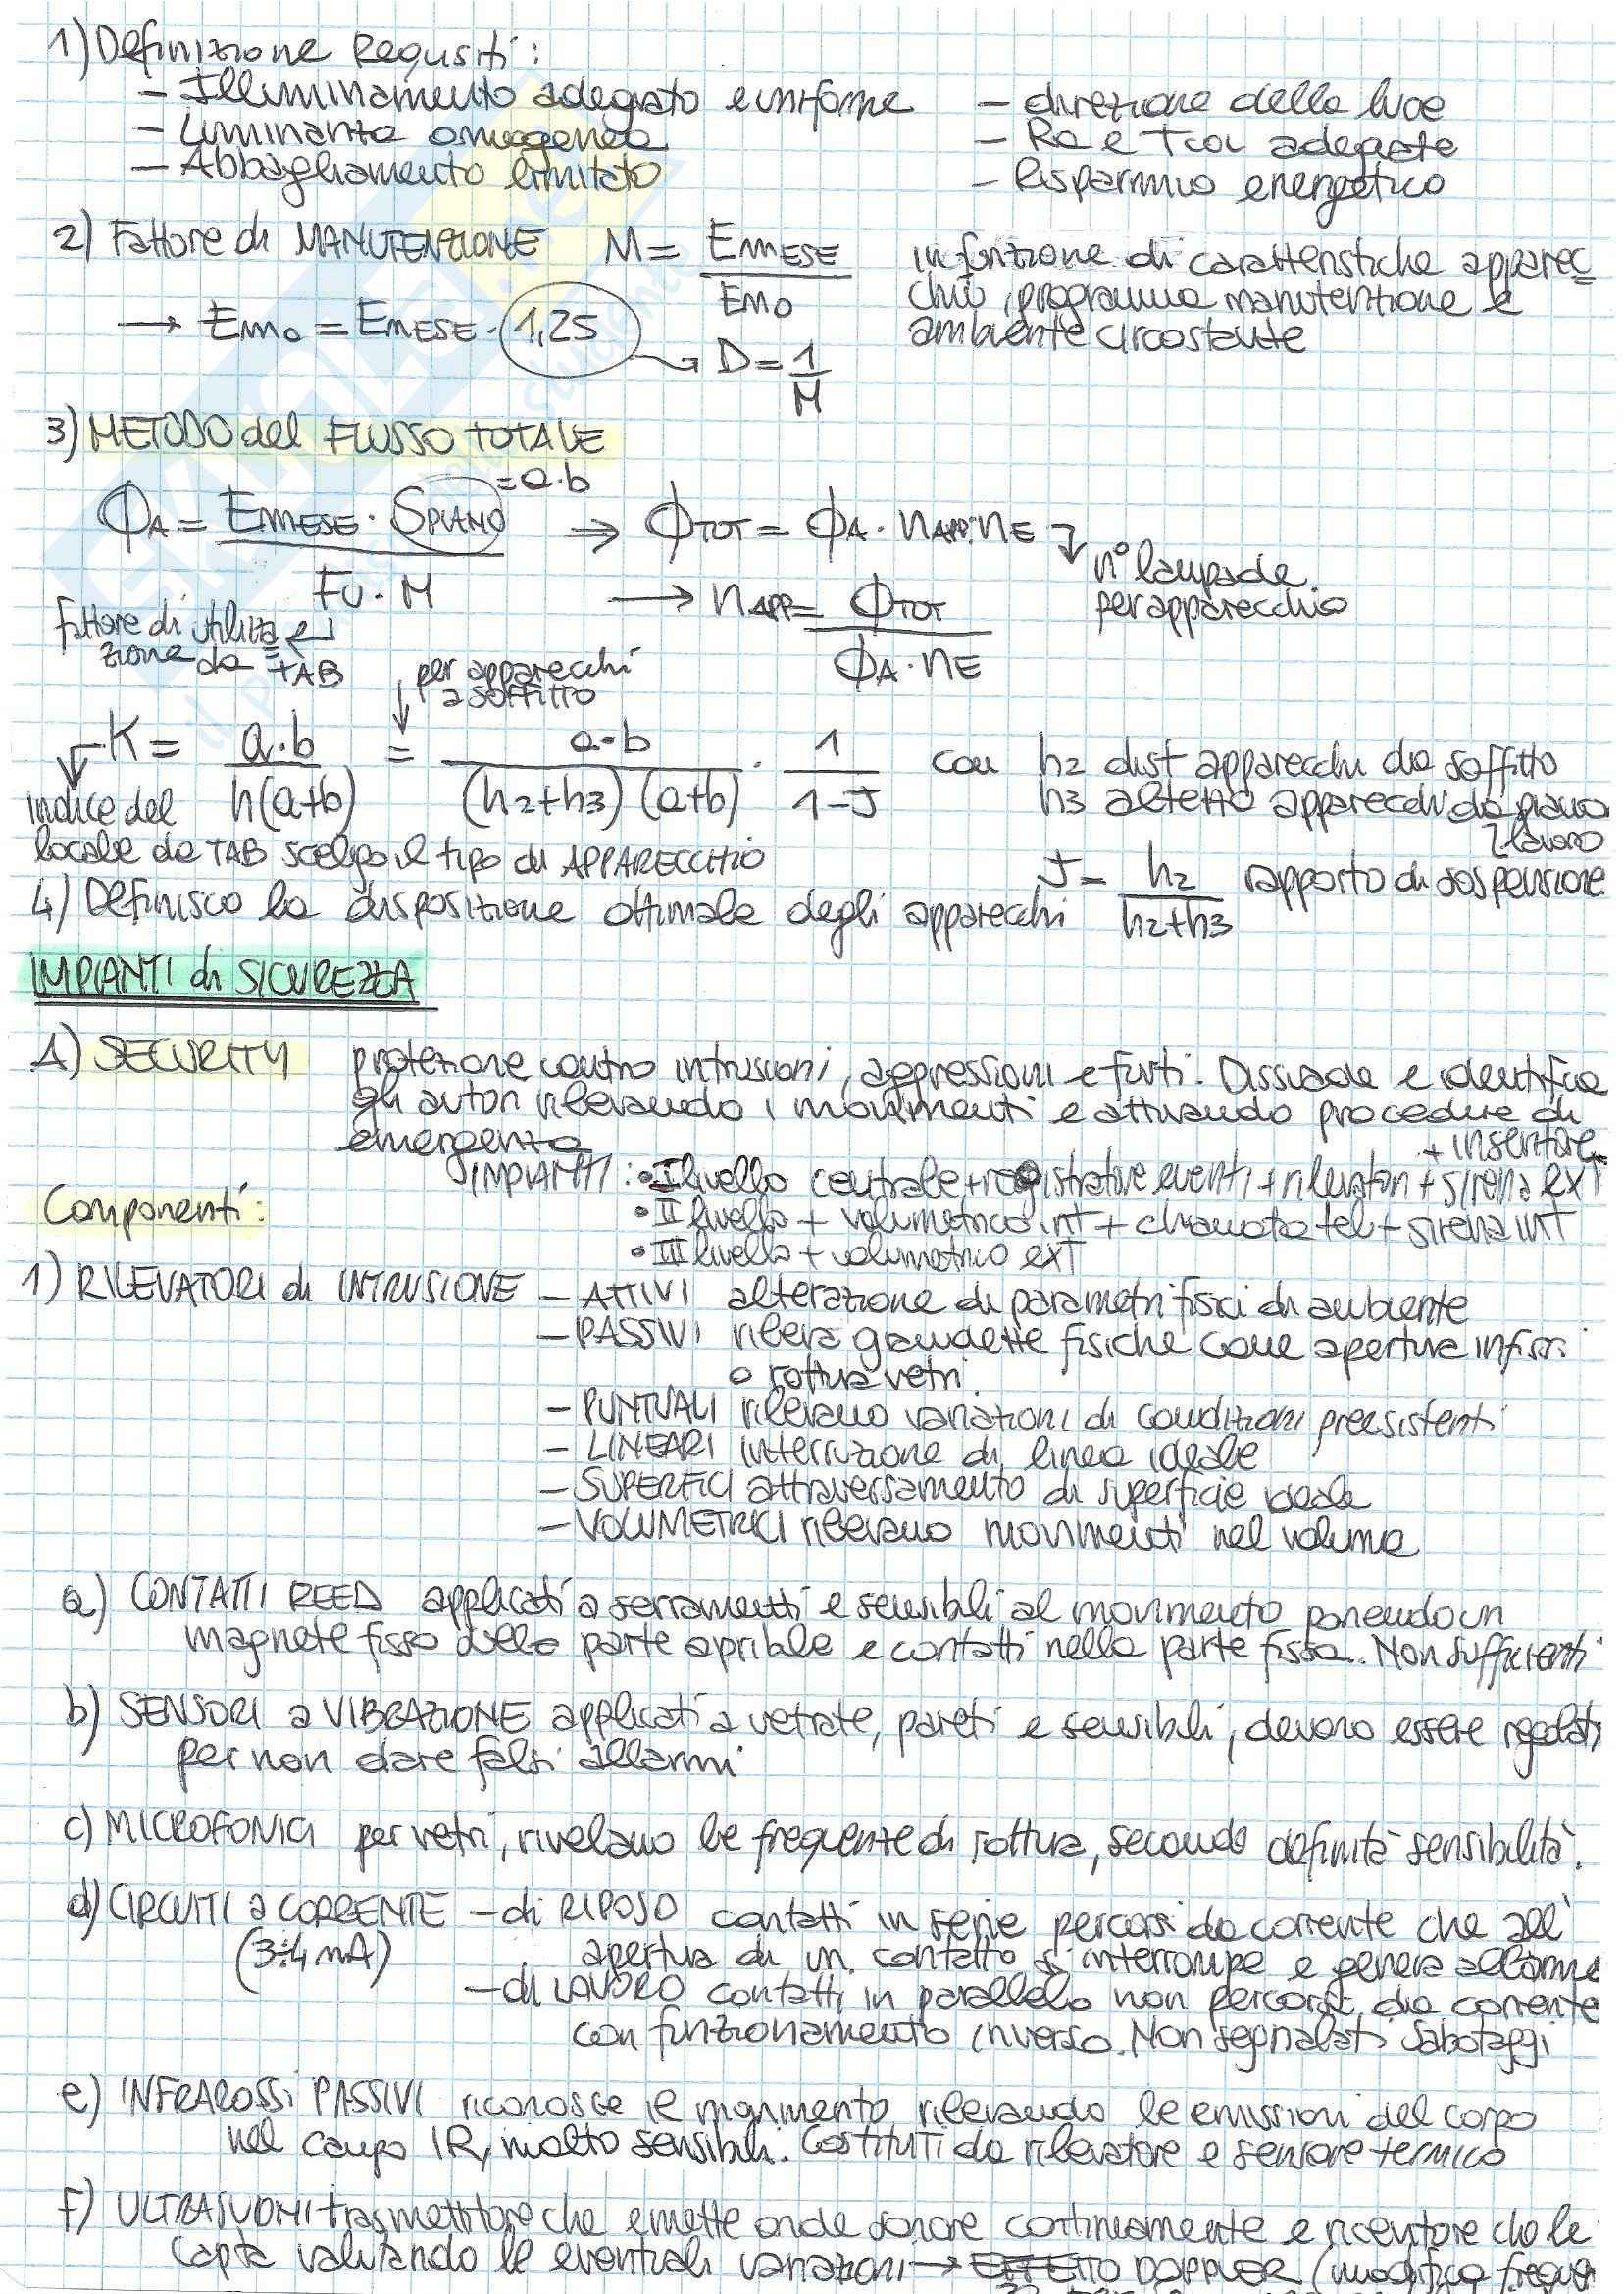 1) Definizione Requisiti:
- Illuminamento adeguato e uniforme
- Luminanza omogenea
- Abbagliamento limitato
- direzione della luce
- Ra e Tcol adeguate
- Risparmio energetico
2) Fattore di MANUTENZIONE M = EmESE / Em0
in funzione di caratteristiche apparec
chio, programma manutenzione e
ambiente circostante
→ Em0 = EmESE · 1,25 → D = 1/M
3) METODO del FLUSSO TOTALE
ΦA = EmESE · SPIANO / FU · M
= a·b
⇒ ΦTOT = ΦA · nAPP · nE
n° lampade
per apparecchio
→ nAPP = ΦTOT / ΦA · nE
fattore di utilizza
zione da TAB
per apparecchi
a soffitto
K = a·b / h(a+b) = a·b / (h2+h3)(a+b) · 1 / 1-J
con h2 dist apparecchi da soffitto
h3 altezza apparecchi da piano
lavoro
indice del
locale da TAB scelgo il tipo di APPARECCHIO
J = h2 / h2+h3 rapporto di sospensione
4) Definisco la disposizione ottimale degli apparecchi
IMPIANTI di SICUREZZA
A) SECURITY protezione contro intrusioni, aggressioni e furti. Dissuade e identifica
gli autori rilevando i movimenti e attuando procedure di
emergenza
+ inseritore
IMPIANTI: • I livello centrale + registratore eventi + rilevatori + sirena ext
• II livello + volumetrico int + chiamata tel + sirena int
• III livello + volumetrico ext
Componenti:
1) RILEVATORI di INTRUSIONE - ATTIVI alterazione di parametri fisici di ambiente
- PASSIVI rileva grandezze fisiche come apertura infissi
o rottura vetri.
- PUNTUALI rilevano variazioni di condizioni preesistenti
- LINEARI interruzione di linea ideale
- SUPERFICI attraversamento di superficie ideale
- VOLUMETRICI rilevano movimenti nel volume
a) CONTATTI REED applicati a serramenti e sensibili al movimento ponendo un
magnete fisso nella parte apribile e contatti nella parte fissa. Non sufficienti
b) SENSORI a VIBRAZIONE applicati a vetrate, pareti e sensibili, devono essere regolati
per non dare falsi allarmi
c) MICROFONICI per vetri, rivelano le frequenze di rottura, secondo definita sensibilità.
d) CIRCUITI a CORRENTE - di RIPOSO contatti in serie percorsi da corrente che all'
(3÷4 mA)
apertura di un contatto si interrompe e genera allarme
- di LAVORO contatti in parallelo non percorsi da corrente
con funzionamento inverso. Non segnalati sabotaggi
e) INFRAROSSI PASSIVI riconosce il movimento rilevando le emissioni del corpo
nel campo IR, molto sensibili. Costituiti da rilevatore e sensore termico
f) ULTRASUONI trasmettitore che emette onde sonore continuamente e ricevitore che le
capta valutando le eventuali variazioni → EFFETTO DOPPLER (modifica frequ